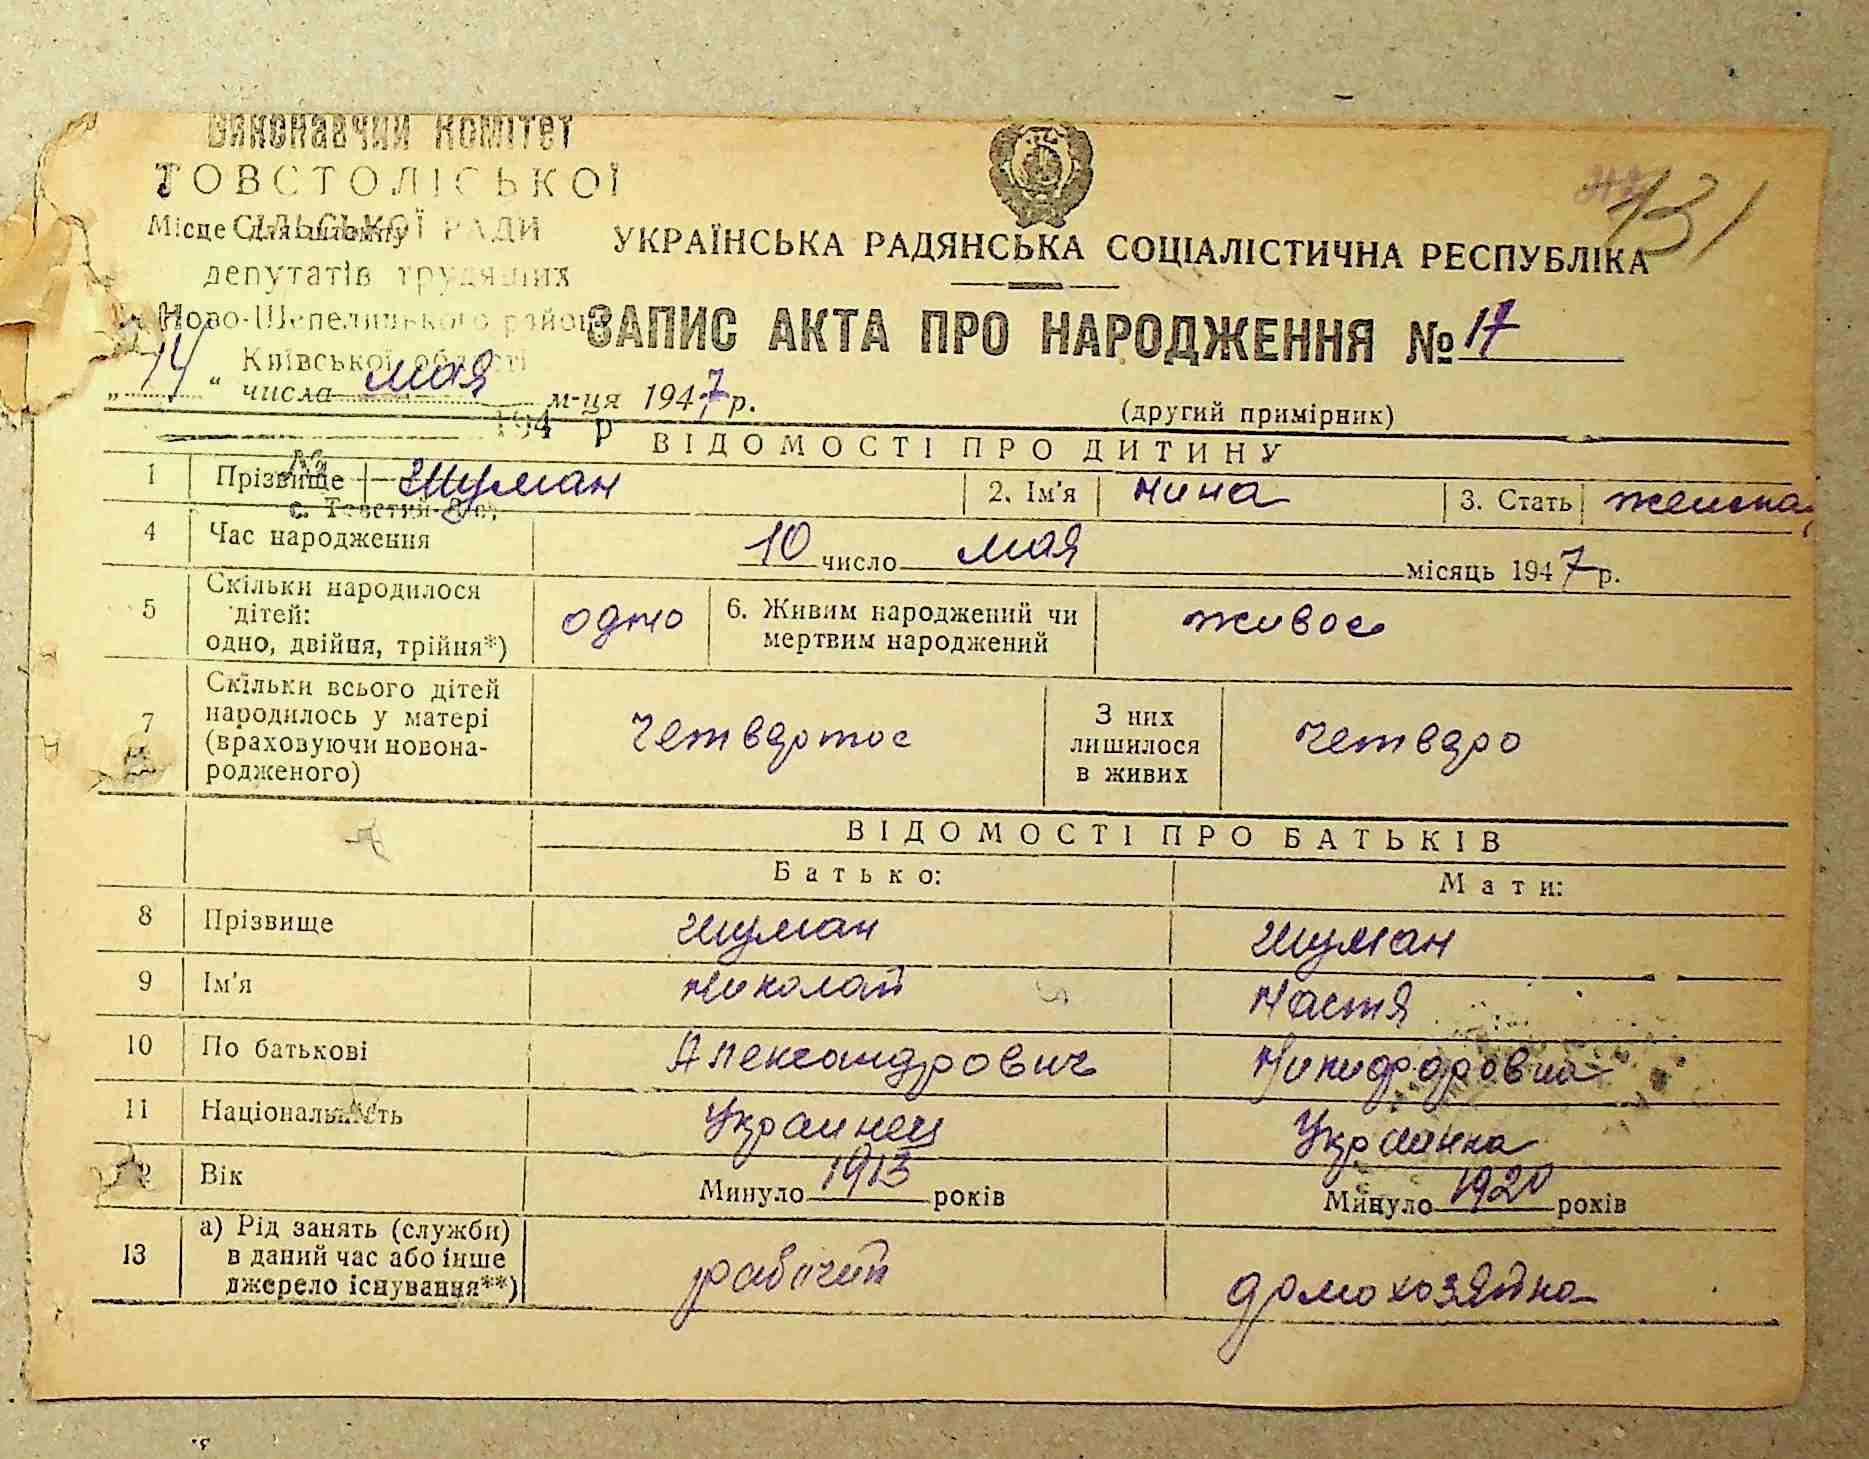 Виконавчий Комітет
ТОВСТОЛІСЬКОЇ
СІЛЬСЬКОЇ РАДИ
Місце для штампу
депутатів трудящих
Ново-Шепелицького району
Київської області
194 р
№
с. Товстий-Ліс,
131
УКРАЇНСЬКА РАДЯНСЬКА СОЦІАЛІСТИЧНА РЕСПУБЛІКА
ЗАПИС АКТА ПРО НАРОДЖЕННЯ № 17
„14“ числа мая м-ця 1947 р.
(другий примірник)
ВІДОМОСТІ ПРО ДИТИНУ
1 Прізвище Шуман 2. Ім'я Нина 3. Стать женская
4 Час народження 10 число мая місяць 1947 р.
5 Скільки народилося
дітей:
одно, двійня, трійня*)
одно
6. Живим народжений чи
мертвим народжений
живое
7 Скільки всього дітей
народилось у матері
(враховуючи новона-
родженого)
четвертое
З них
лишилося
в живих
четверо
ВІДОМОСТІ ПРО БАТЬКІВ
Батько: Мати:
8 Прізвище Шуман Шуман
9 Ім'я Николай Настя
10 По батькові Александрович Никифоровна
11 Національність Украинец Украинка
12 Вік Минуло 1913 років Минуло 1920 років
13 а) Рід занять (служби)
в даний час або інше
джерело існування**)
рабочий домохозяйка